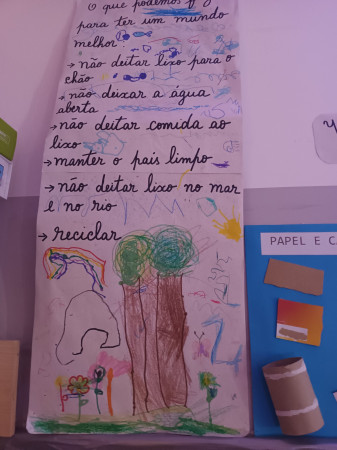 O que podemos
para ter um mundo
melhor?
→ não deitar lixo para o
chão
→ não deixar a água
aberta
→ não deitar comida ao
lixo
→ manter o pais limpo
→ não deitar lixo no mar
e no rio
→ reciclar
PAPEL E